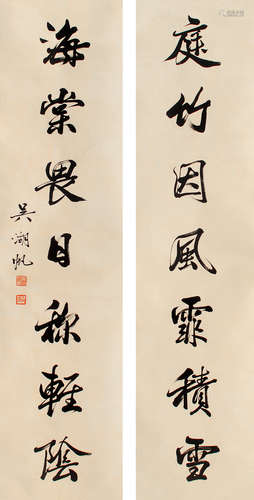 庭竹因風霏積雪
海棠畏日称輕陰
吳湖帆